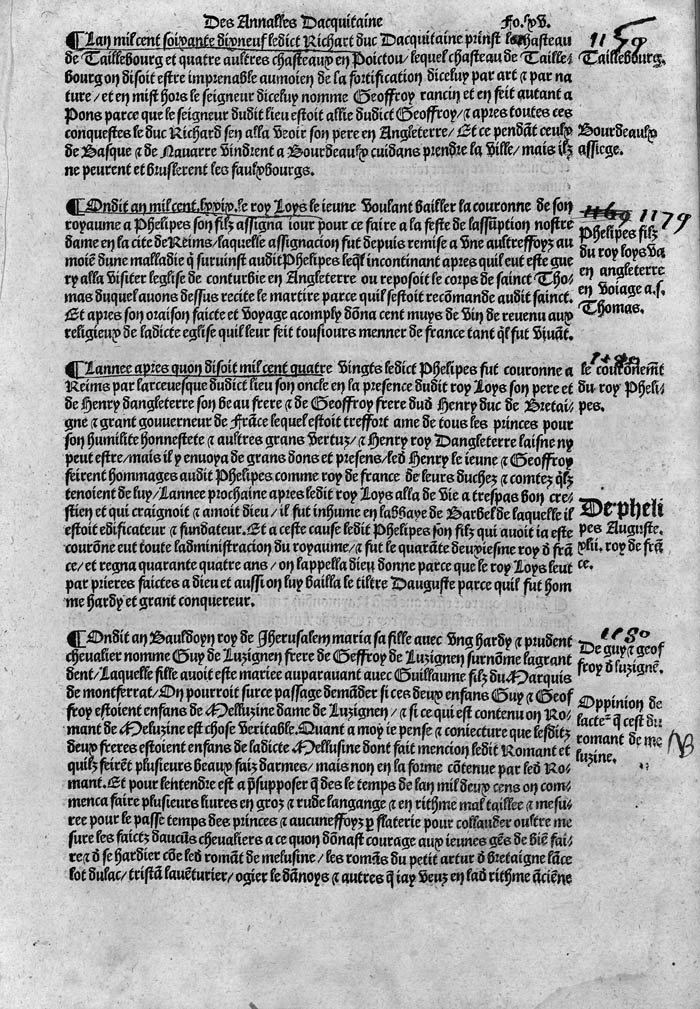 Des Annalles Dacquitaine Fo. lxv.
¶ Lan mil cent soixante dixneuf ledict Richart duc Dacquitaine prinst le chasteau
de Taillebourg et quatre aultres chasteaux en Poictou / lequel chasteau de Taille-
bourg on disoit estre imprenable au moien de la fortification diceluy par art ⁊ par na
ture / et en mist hors le seigneur diceluy nomme Geoffroy rancin et en feit autant a
Pons parce que le seigneur dudit lieu estoit allie dudict Geoffroy / ⁊ apres toutes ces
conquestes le duc Richard sen alla veoir son pere en Angleterre / Et ce pendāt ceulx
de Basque ⁊ de Nauarre vindrent a Bourdeaulx cuidans prendre la ville / mais ilz
ne peurent et bruslerent les faulxbourgs.
1159
Taillebourg.
Bourdeaulx
assiege.
¶ Ondit an mil cent. lxxix. le roy Loys le ieune voulant bailler la couronne de son
royaume a Phelipes son filz assigna iour pour ce faire a la feste de lassūption nostre
dame en la cite de Reims / laquelle assignacion fut depuis remise a vne aultreffoyz au
moiē dune malladie q̄ suruinst audit Phelipes leq̄l incontinant apres quil eut este gue
ry alla visiter leglise de conturbie en Angleterre ou reposoit le corps de sainct Tho-
mas duquel auons dessus recite le martire parce quil sestoit recōmande audit sainct.
Et apres son oraison faicte et voyage acomply dōna cent muys de vin de reuenu aux
religieux de ladicte eglise quil leur feit tousiours menner de france tant q̄l fut viuāt.
1169 1179
Phelipes filz
du roy loys va
en angleterre
en voiage a. s.
Thomas.
¶ Lannee apres quon disoit mil cent quatre vingts ledict Phelipes fut couronne a
Reims par larceuesque dudict lieu son oncle en la presence dudit roy Loys son pere et
de Henry dangleterre son beau frere ⁊ de Geoffroy frere dud Henry duc de Bretai-
gne ⁊ grant gouuerneur de Frāce lequel estoit treffort ame de tous les princes pour
son humilite honnestete ⁊ aultres grans vertuz / ⁊ Henry roy Dangleterre laisne ny
peut estre / mais il y enuoya de grans dons et presens / led Henry le ieune ⁊ Geoffroy
feirent hommages audit Phelipes comme roy de france de leurs duchez ⁊ comtez q̄lz
tenoient de luy / Lannee prochaine apres ledit roy Loys alla de vie a trespas bon cre-
stien et qui craignoit ⁊ amoit dieu / il fut inhume en labbaye de Barbel de laquelle il
estoit edificateur ⁊ fundateur. Et a ceste cause ledit Phelipes son filz qui auoit ia este
courōne eut toute ladministracion du royaume / ⁊ fut le quarāte deuxiesme roy d frā
ce / et regna quarante quatre ans / on lappella dieu donne parce que le roy Loys leut
par prieres faictes a dieu et aussi on luy bailla le tiltre Dauguste parce quil fut hom
me hardy et grant conquereur.
1180
le courōnemēt
du roy Pheli-
pes.
De pheli
pes Auguste.
xlii. roy de frā
ce.
¶ Ondit an Bauldoyn roy de Jherusalem maria sa fille auec vng hardy ⁊ prudent
cheualier nomme Guy de Luzignen frere de Geffroy de Luzignen surnōme la grant
dent / Laquelle fille auoit este mariee auparauant auec Guillaume filz du Marquis
de montferrat / On pourroit sur ce passage demāder si ces deux enfans Guy ⁊ Geof
froy estoient enfans de Melluzine dame de Luzignen / ⁊ si ce qui est contenu on Ro-
mant de Meluzine est chose veritable. Quant a moy ie pense ⁊ coniecture que lesditz
deux freres estoient enfans de ladicte Mellusine dont fait mencion ledit Romant et
quilz feirēt plusieurs beaux faiz darmes / mais non en la forme cōtenue par led Ro-
mant. Et pour lentendre est a p̄supposer q̄ des le temps de lan mil deux cens on com-
menca faire plusieurs liures en groz ⁊ rude langange ⁊ en rithme mal taillee ⁊ mesu-
ree pour le passe temps des princes ⁊ aucuneffoyz ꝑ flaterie pour collauder oultre me
sure les faictz daucūs cheualiers a ce quon dōnast courage aux ieunes gēs de biē fai-
re ⁊ d se hardier cōe led romāt de melusine / les romās du petit artur d bretaigne lāce
lot dulac / tristā lauēturier / ogier le dānoys ⁊ autres q̄ iay veuz en lad rithme āciēne
1180
De guy ⁊ geof
froy d luzignē.
Oppinion de
lacteᵘʳ q̄ cest du
romant de me
luzine.
NB